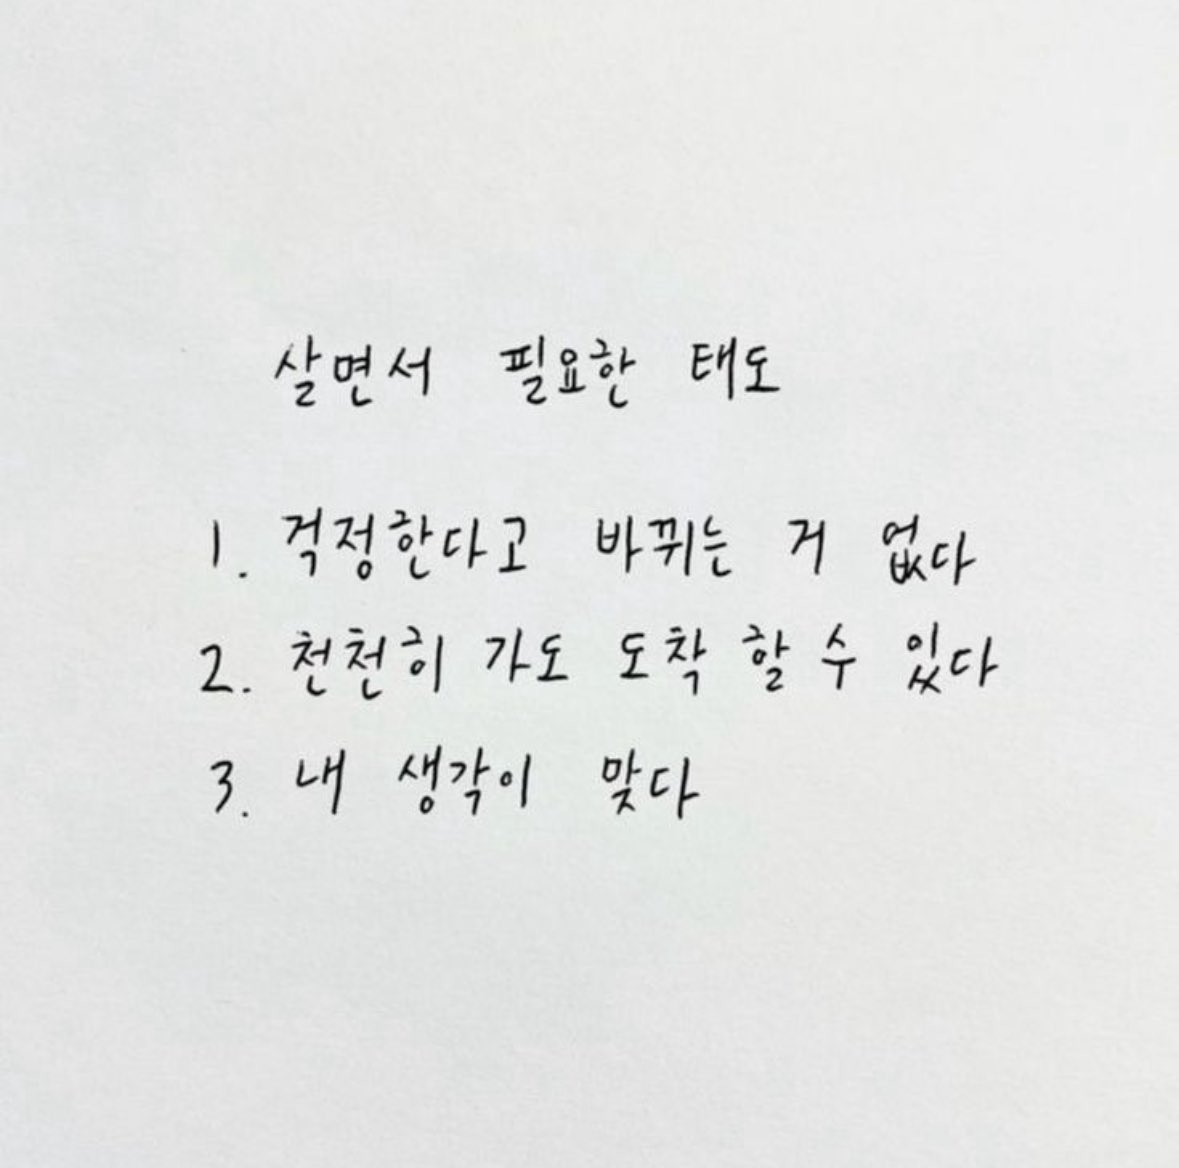 살면서 필요한 태도
1. 걱정한다고 바뀌는 거 없다
2. 천천히 가도 도착 할 수 있다
3. 내 생각이 맞다